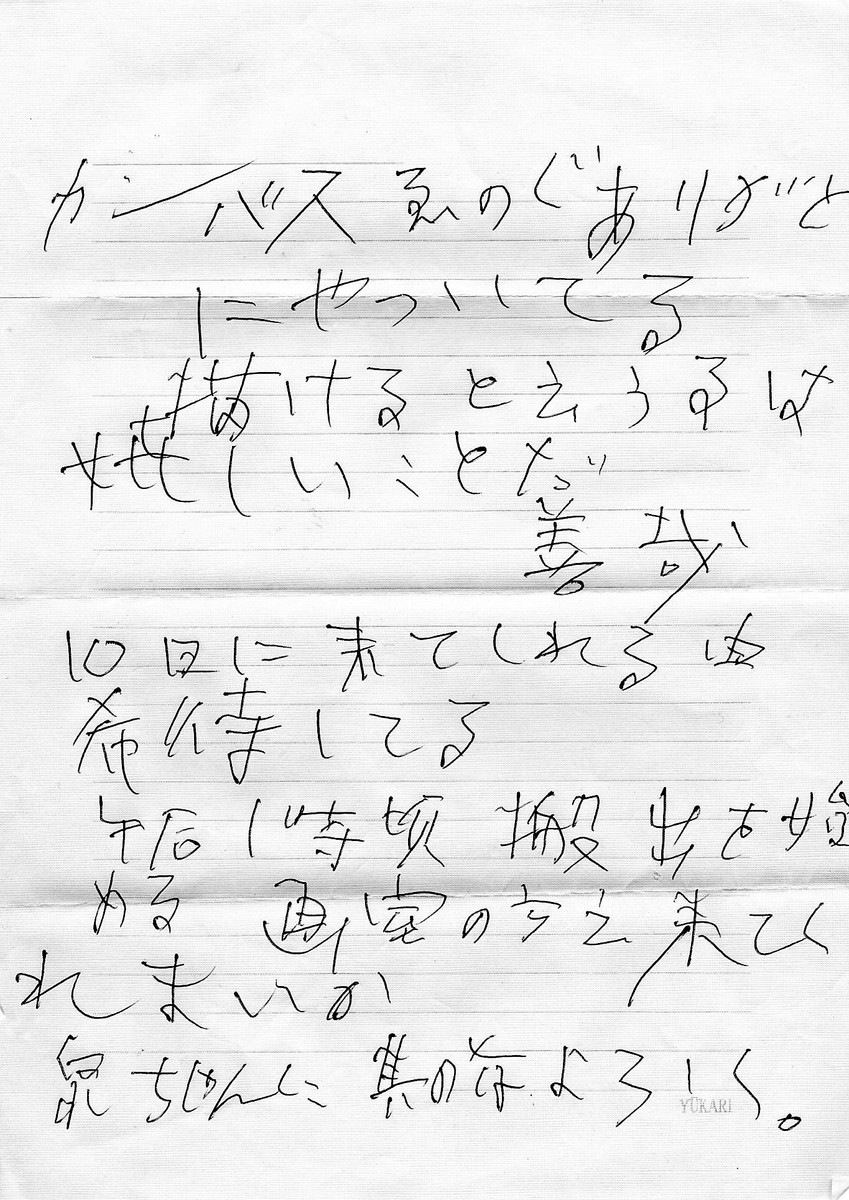 カンバスゑのぐありがと
にやついてる
描けると云うるは
嬉しいことだ
善哉
10日に来てくれる由
希待してる
午后1時頃 搬出を始
める 画室の方え来てく
れまいか
ちゃんに其の存よろしく。
YŪKARI